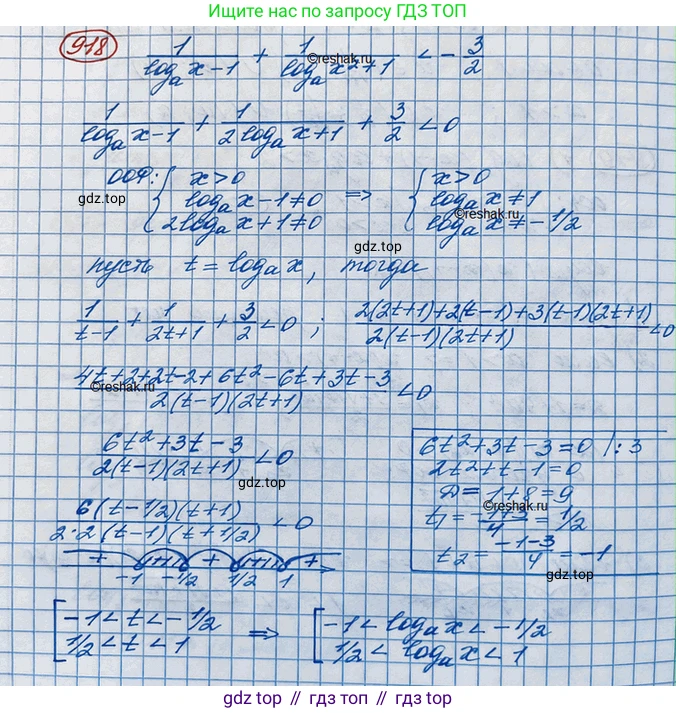 Ищите нас по запросу ГДЗ ТОП
918
1/(logₐ x-1) + 1/(logₐ x²+1) < -3/2
©reshak.ru
1/(logₐ x-1) + 1/(2logₐ x+1) + 3/2 < 0
ООФ: { x>0 ; logₐ x-1≠0 ; 2logₐ x+1≠0 => { x>0 ; logₐ x≠1 ; logₐ x≠-1/2
gdz.top
©reshak.ru
gdz.top
пусть t = logₐ x, тогда
1/(t-1) + 1/(2t+1) + 3/2 < 0 ; (2(2t+1)+2(t-1)+3(t-1)(2t+1))/(2(t-1)(2t+1)) < 0
(4t+2+2t-2+6t²-6t+3t-3)/(2(t-1)(2t+1)) < 0
©reshak.ru
(6t²+3t-3)/(2(t-1)(2t+1)) < 0
gdz.top
6(t-1/2)(t+1)/(2·2(t-1)(t+1/2)) < 0
+ + +
-1 -1/2 1/2 1
6t²+3t-3=0 |:3
2t²+t-1=0
D=1+8=9
©reshak.ru
t₁ = (-1+3)/4 = 1/2
t₂ = (-1-3)/4 = -1
gdz.top
[ -1<t<-1/2 ; 1/2<t<1 => [ -1<logₐ x<-1/2 ; 1/2<logₐ x<1
gdz.top // гдз топ // gdz.top